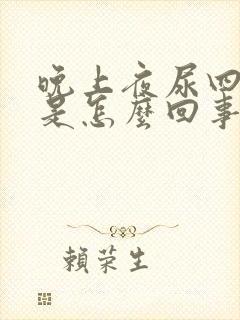 晚上夜尿四
是怎麼回事
賴荣生